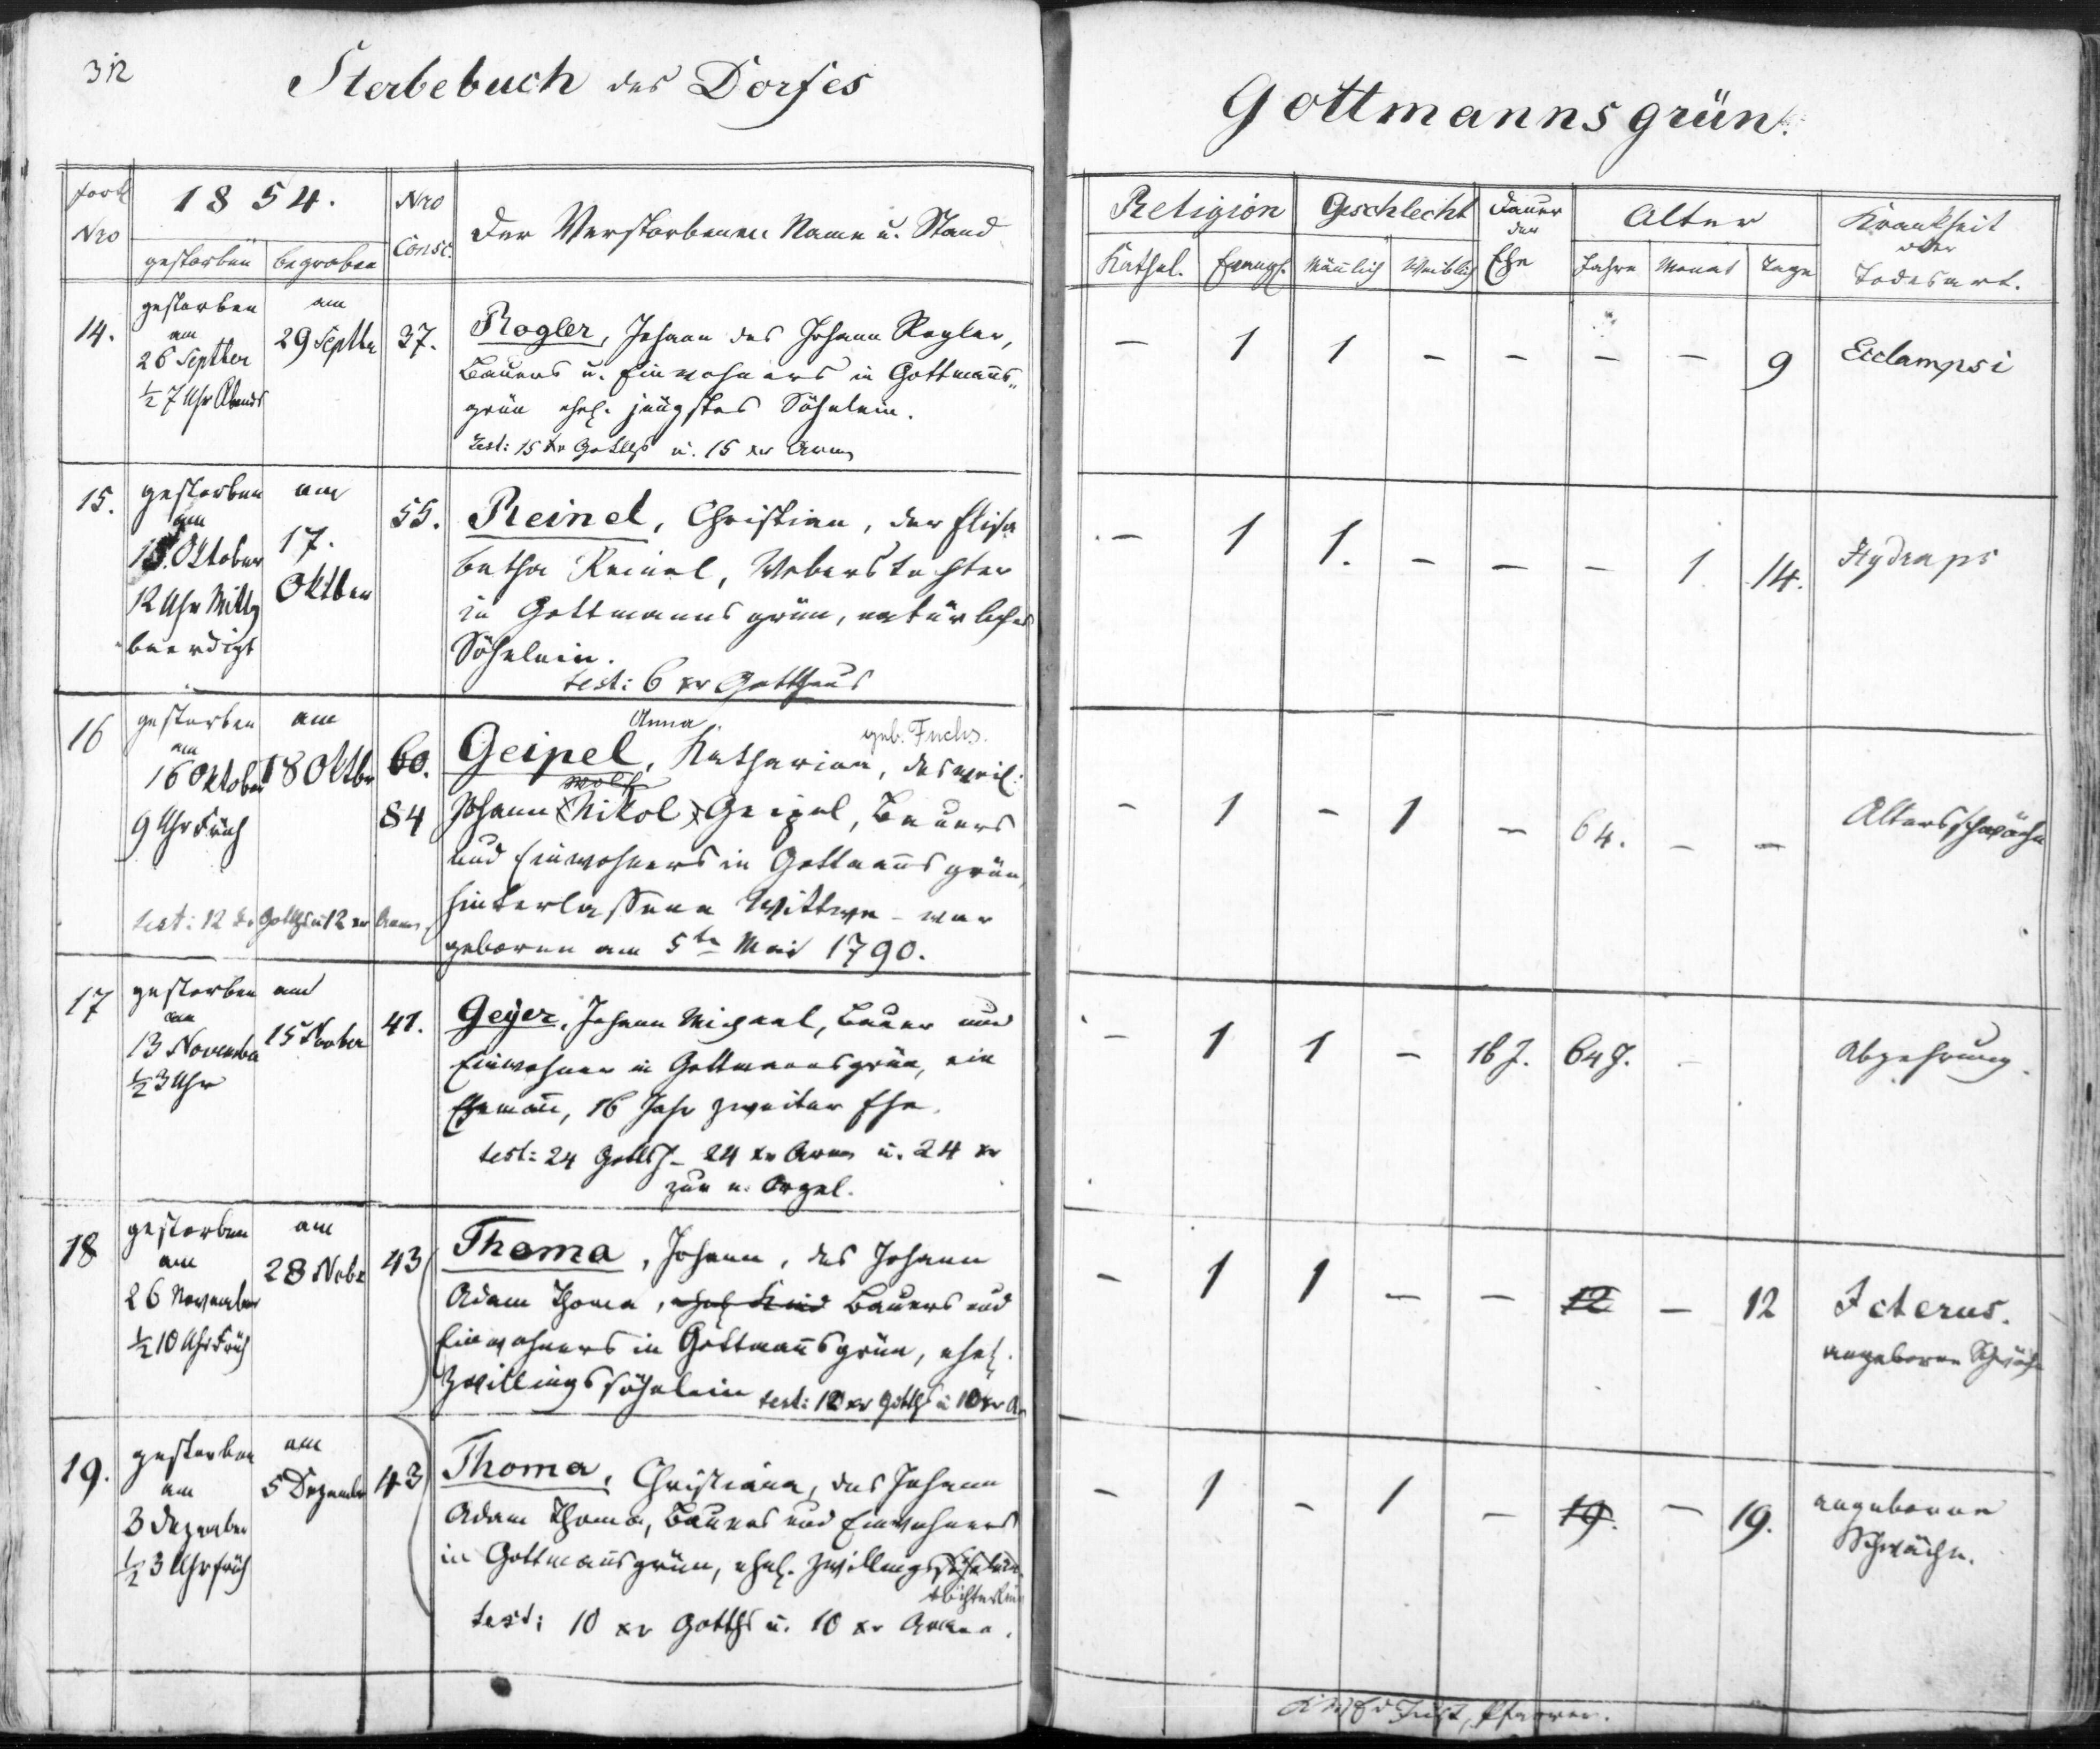 312
Sterbebuch des Dorfes
Gottmannsgrün.
fortl
Nro
1854.
gestorben
begraben
Nro
Consc.
Der Verstorbenen Name u. Stand
Religion
Kathol.
Evangl.
Geschlecht
Männlich
Weiblich
Dauer
der
Ehe
Alter
Jahre
Monat
Tage
Krankheit
oder
Todesart.
14.
gestorben
am
26 Septber
½ 7 Uhr Abends
am
29 Septbr
37.
Rogler, Johann des Johann Rogler,
Bauers u. Einwohners in Gottmanns„
grün ehel. jüngstes Söhnlein.
test: 15 kr Gotths u. 15 kr Armen
– 1 1 – – – – 9
Eclampsi
15.
gestorben
am
15. Oktober
12 Uhr Mittg
beerdigt
am
17.
Oktber
55.
Reinel, Christian, der Elisa
betha Reinel, Weberstochter
in Gottmannsgrün, natürliches
Söhnlein.
test: 6 kr Gotthaus
– 1 1. – – – 1. 14.
Hydraps
16
gestorben
am
16 Oktober
9 Uhr Früh
am
18 Oktbr
60.
84
Anna
geb. Fuchs.
Geipel, Katharina, des weil:
Wolf
Johann Nikol Geipel, Bauers
und Einwohners in Gottmannsgrün,
hinterlassene Wittwe – war
geboren am 5tn Mai 1790.
test: 12 kr Gotths u 12 kr Armen
– 1 – 1 – 64. – –
Altersschwäche
17
gestorben
am
13 November
½ 3 Uhr
am
15 Novber
41.
Geyer, Johann Michael, Bauer und
Einwohner in Gottmannsgrün, ein
Ehemann, 16 Jahr zweiter Ehe.
test: 24 Gotths – 24 kr Armen u. 24 kr
zur n. Orgel.
– 1 1 – 16 J. 64 J. –
Abzehrung.
18
gestorben
am
26 November
½ 10 Uhr Früh
am
28 Nobr
43
Thoma, Johann, des Johann
Adam Thoma, ehel Kind Bauers und
Einwohners in Gottmannsgrün, ehel.
Zwillingssöhnlein test: 10 kr Gotths u 10 kr Ar
– 1 1 – – 12 – 12
Icterus.
angeborne Schwäche
19.
gestorben
am
3 Dezember
½ 3 Uhr früh
am
5 Dezember
43
Thoma, Christiana, des Johann
Adam Thoma, Bauers und Einwohners
in Gottmannsgrün, ehel. Zwillingssöhnlein
töchterlein
test: 10 kr Gotths u. 10 kr Armen.
– 1 – 1 – 19. – 19.
angeborne
Schwäche.
Pfarrer.